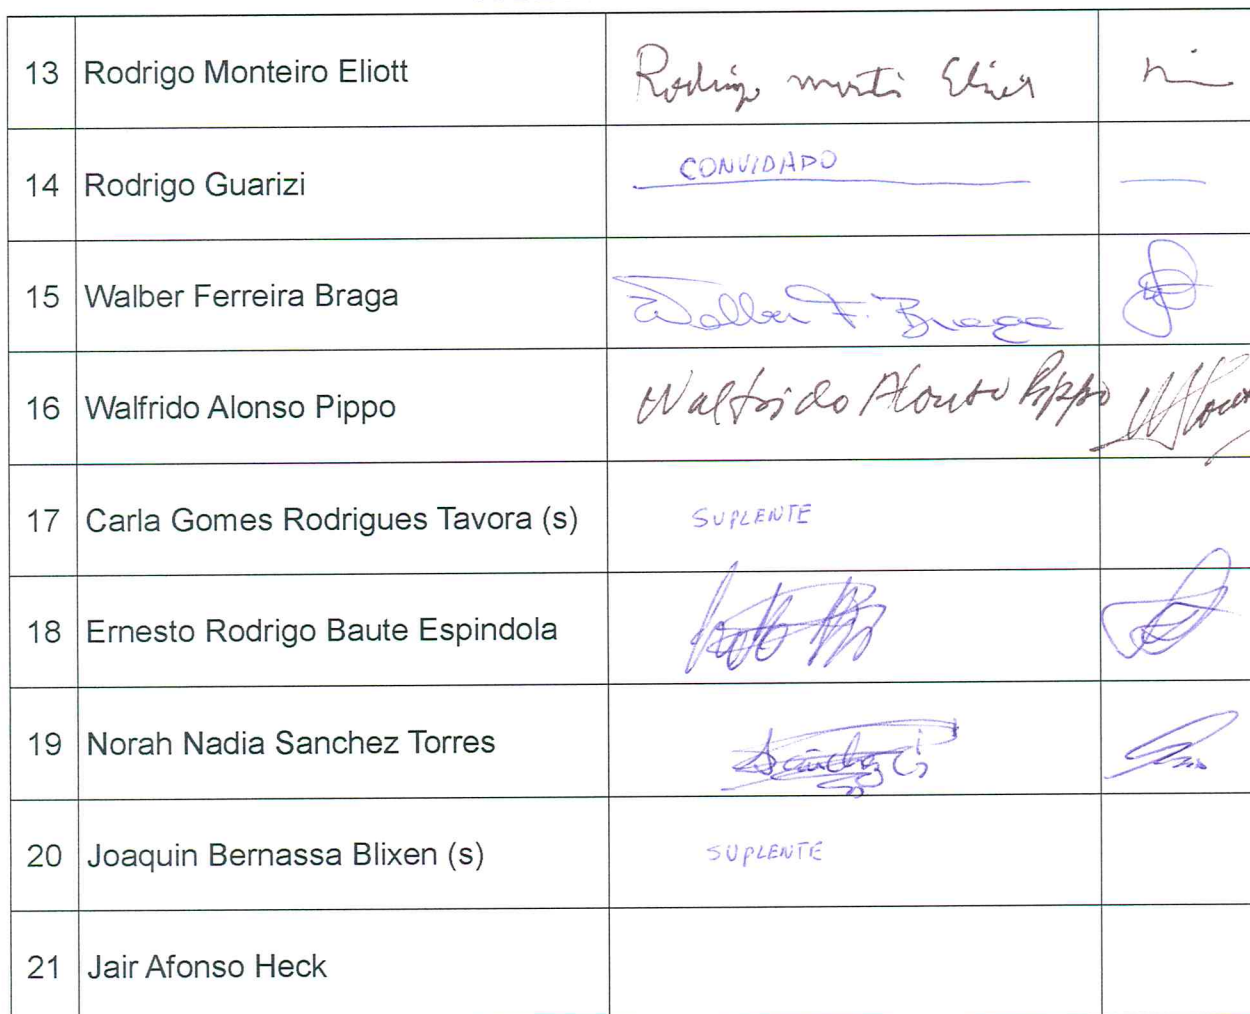 13 Rodrigo Monteiro Eliott Rodrigo
14 Rodrigo Guarizi CONVIDADO
15 Walber Ferreira Braga Walber F. Braga
16 Walfrido Alonso Pippo Walfrido Alonso Pippo
17 Carla Gomes Rodrigues Tavora (s) SUPLENTE
18 Ernesto Rodrigo Baute Espindola
19 Norah Nadia Sanchez Torres
20 Joaquin Bernassa Blixen (s) SUPLENTE
21 Jair Afonso Heck